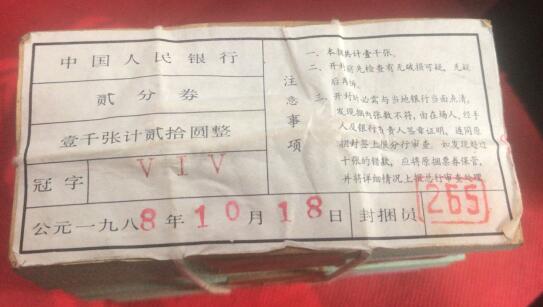 中国人民银行
贰分券
壹千张计贰拾圆整
冠字 VIV
公元一九八8年10月18日 封捆员 265
注意事项
一、本捆共计壹千张。
二、开封前先检查有无破损可疑，无疑
后再拆。
三、开封时必需与当地银行当面点清，
发现捆内张数不符，由在场人、经手
人及银行负责人签章证明，连同原
捆封签上报分行审查。如发现超过
千张的错款，应将原捆票券保管，
并将详细情况上报总行审查处理